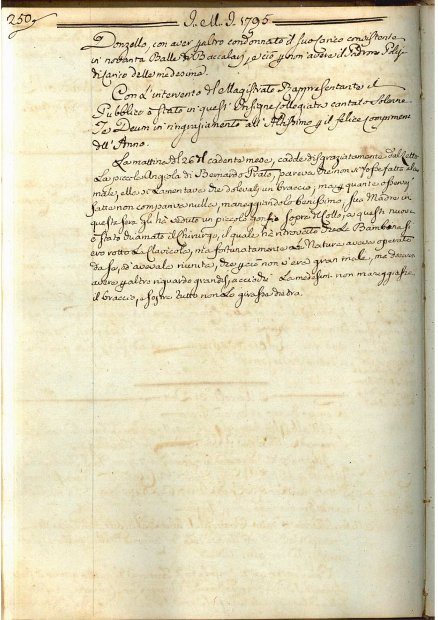 250. J. M. J. 1795
Donzello, con aver peraltro condonnato il suo carico consistente
in novanta Balle di Baccalari, e ciò per non avere il Padrone Polizza
di carico delle medesime.
Con l'intervento del Magistrato Rappresentante il
Pubblico è stato in quest' Insigne Collegiata cantato Solenne
Te Deum in ringraziamento all' Altissimo per il felice compimento
dell' Anno.
La mattina del 26 del cadente mese, cadde disgraziatamente dal Letto
La piccola Angiola di Bernardo Prato, pareva che non si fosse fatta alcun
male, ella si Lamentava che doleva un braccio; ma per quante osservaz.
fatte non compariva nulla, maneggiandolo benissimo, sua Madre in
questa sera gli ha veduto un piccolo gonfio sopra il Collo, a questa nuova
è stato chiamato il Chirurgo, il quale ha ritrovato che La Bambina si
era rotta La Clavicola, ma fortunatamente La Natura aveva operato
da se, ed avevala riunita, che perciò non v'era gran male, ma doveva
avere peraltro riguardo grande, acciochè La medesima non maneggiasse
il braccio, e sopra tutto non lo girasse dietro.